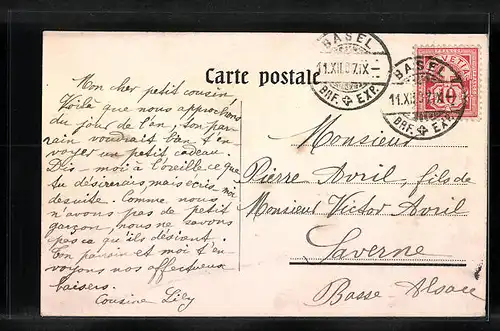 Carte postale
BASEL
11.XII.07.IX
BRF. EXP.
BASEL
11.XII.07.IX
BRF. EXP.
10
Mon cher petit cousin
Voilà que nous approchons
du jour de l'an, ton par-
rain voudrait bien t'en
voyer un petit cadeau.
Dis-moi à l'oreille ce que
tu désirerais mais écris-moi
desuite. Comme nous
n'avons pas de petit
garçon, nous ne savons
pas ce qu'ils désirent.
Ton parrain et moi t'en
voyons nos affectueux
baisers.
Cousine Lily
Monsieur
Pierre Avril, fils de
Monsieur Victor Avril
Saverne
Basse-Alsace